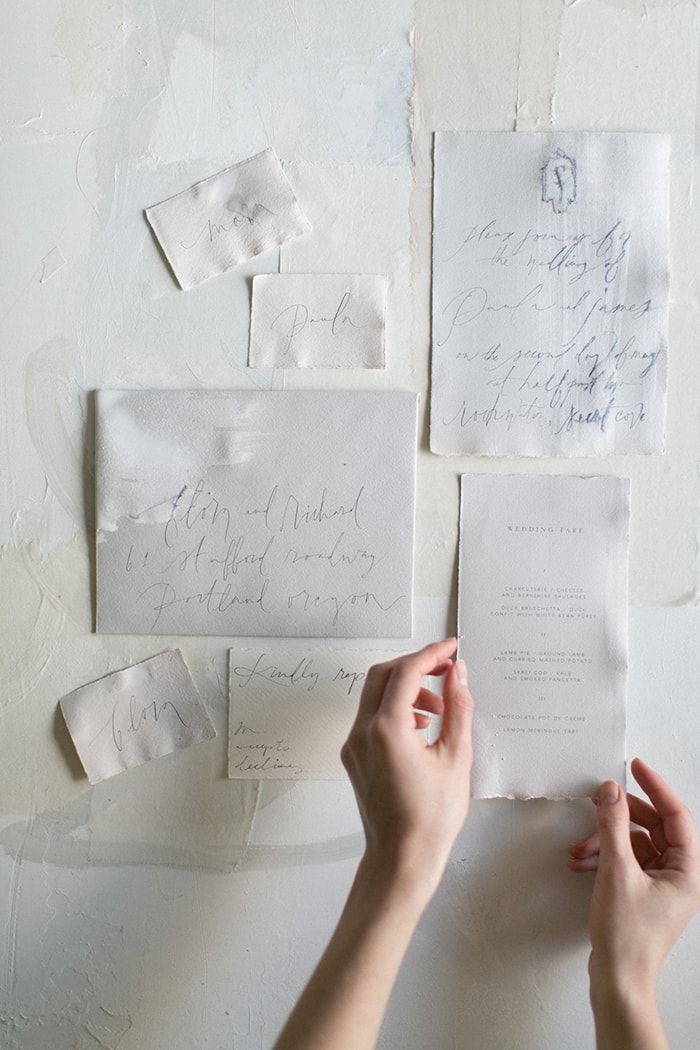 mom
Paula
Please join us for
the wedding of
Paula and james
on the second day of may
at half past two
secret cove
Glory and richard
61 stafford roadway
Portland oregon
Glory
Kindly
m
accepts
declines
WEDDING FARE
I
CHARCUTERIE / CHEESES
AND BERKSHIRE SAUSAGES
DUCK BRUSCHETTA / DUCK
CONFIT WITH WHITE BEAN PUREE
II
LAMB PIE / GROUND LAMB
AND CURRIED MASHED POTATO
SKREI COD / KALE
AND SMOKED PANCETTA
III
CHOCOLATE POT DE CREME
LEMON MERINGUE TART